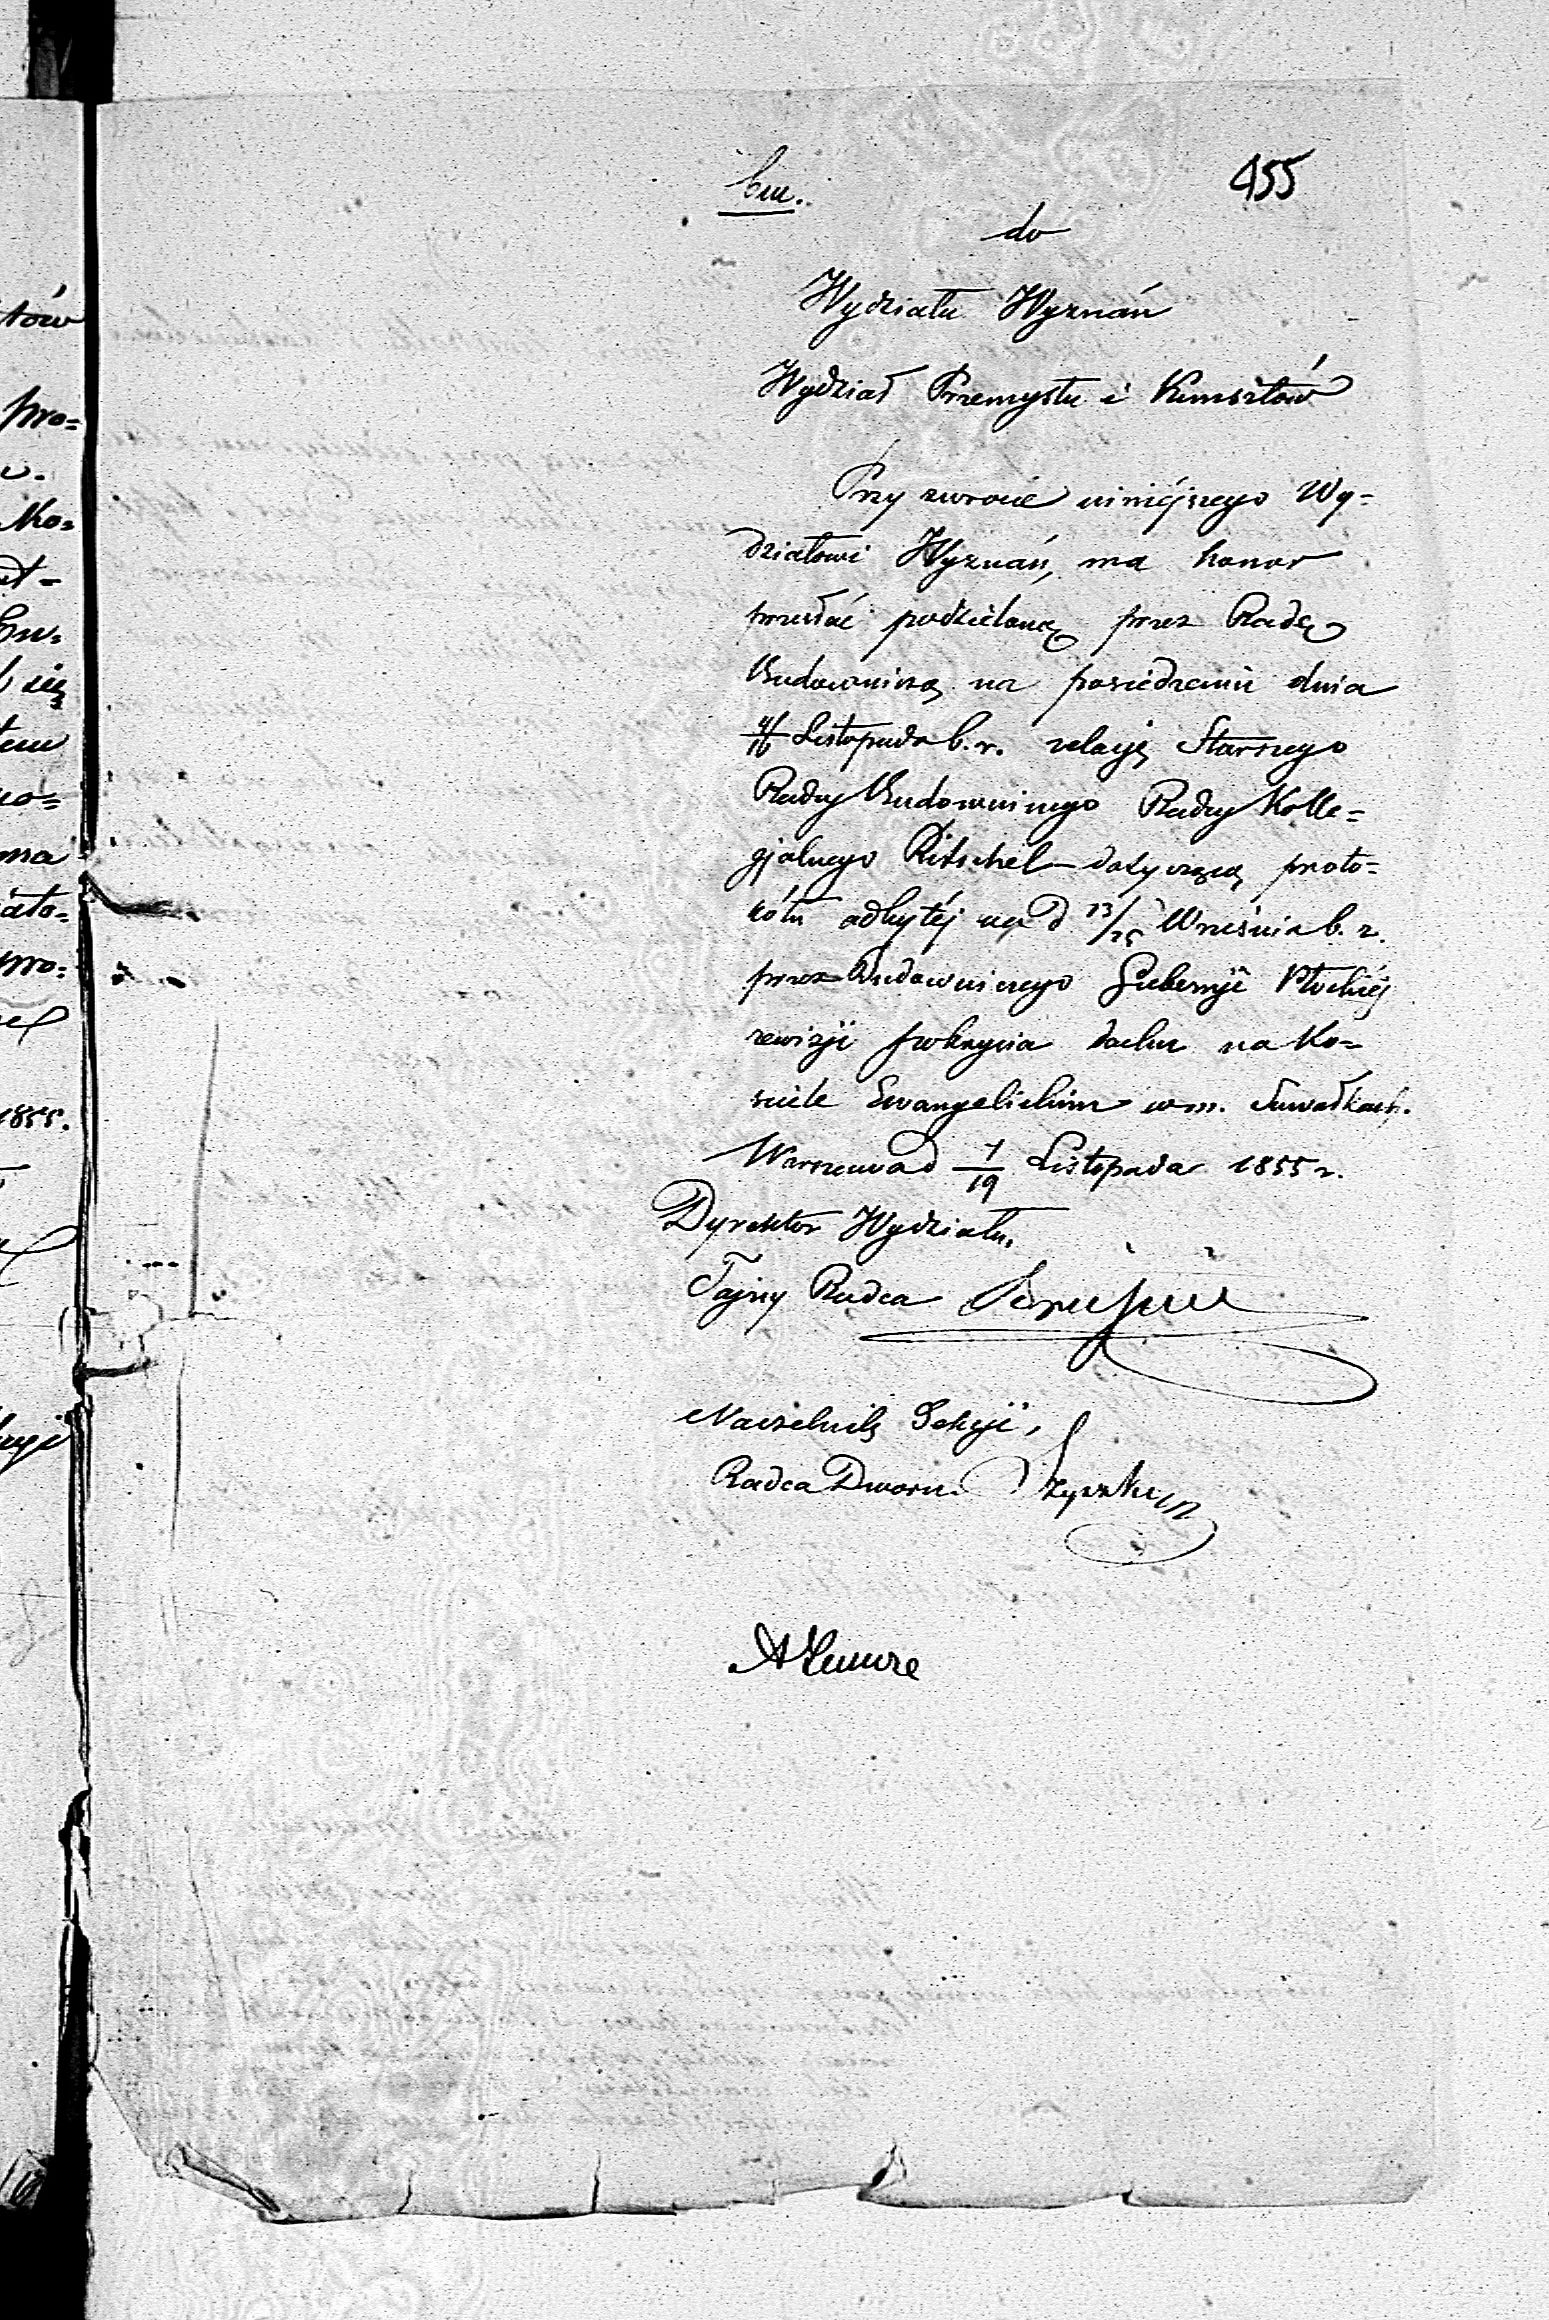 455
do
Wydziału Wyznań
Wydział Przemysłu i Kunsztów
Przy zwrocie niniejszego Wy=
działowi Wyznań, ma honor
przesłać podzieloną przez Radę
Budowniczą na posiedzeniu dnia
4/16 Listopada b. r. relacyę Starszego
Radcy Budowniczego Radcy Kolle=
gjalnego Ritschel dotyczącą proto=
kółu odbytéj na d 13/25 Września b. r.
przez Budowniczego Gubernji Płockiéj
rewizji pokrycia dachu na Ko=
sciele Ewangelickim w m. Suwałkach.
Warszawa d 7/19 Listopada 1855 r.
Dyrektor Wydziału,
Tajny Radca
Naczelnik Sekcji,
Radca Dworu
tów
pro=
Ko=
się
ma
pro=
1855.